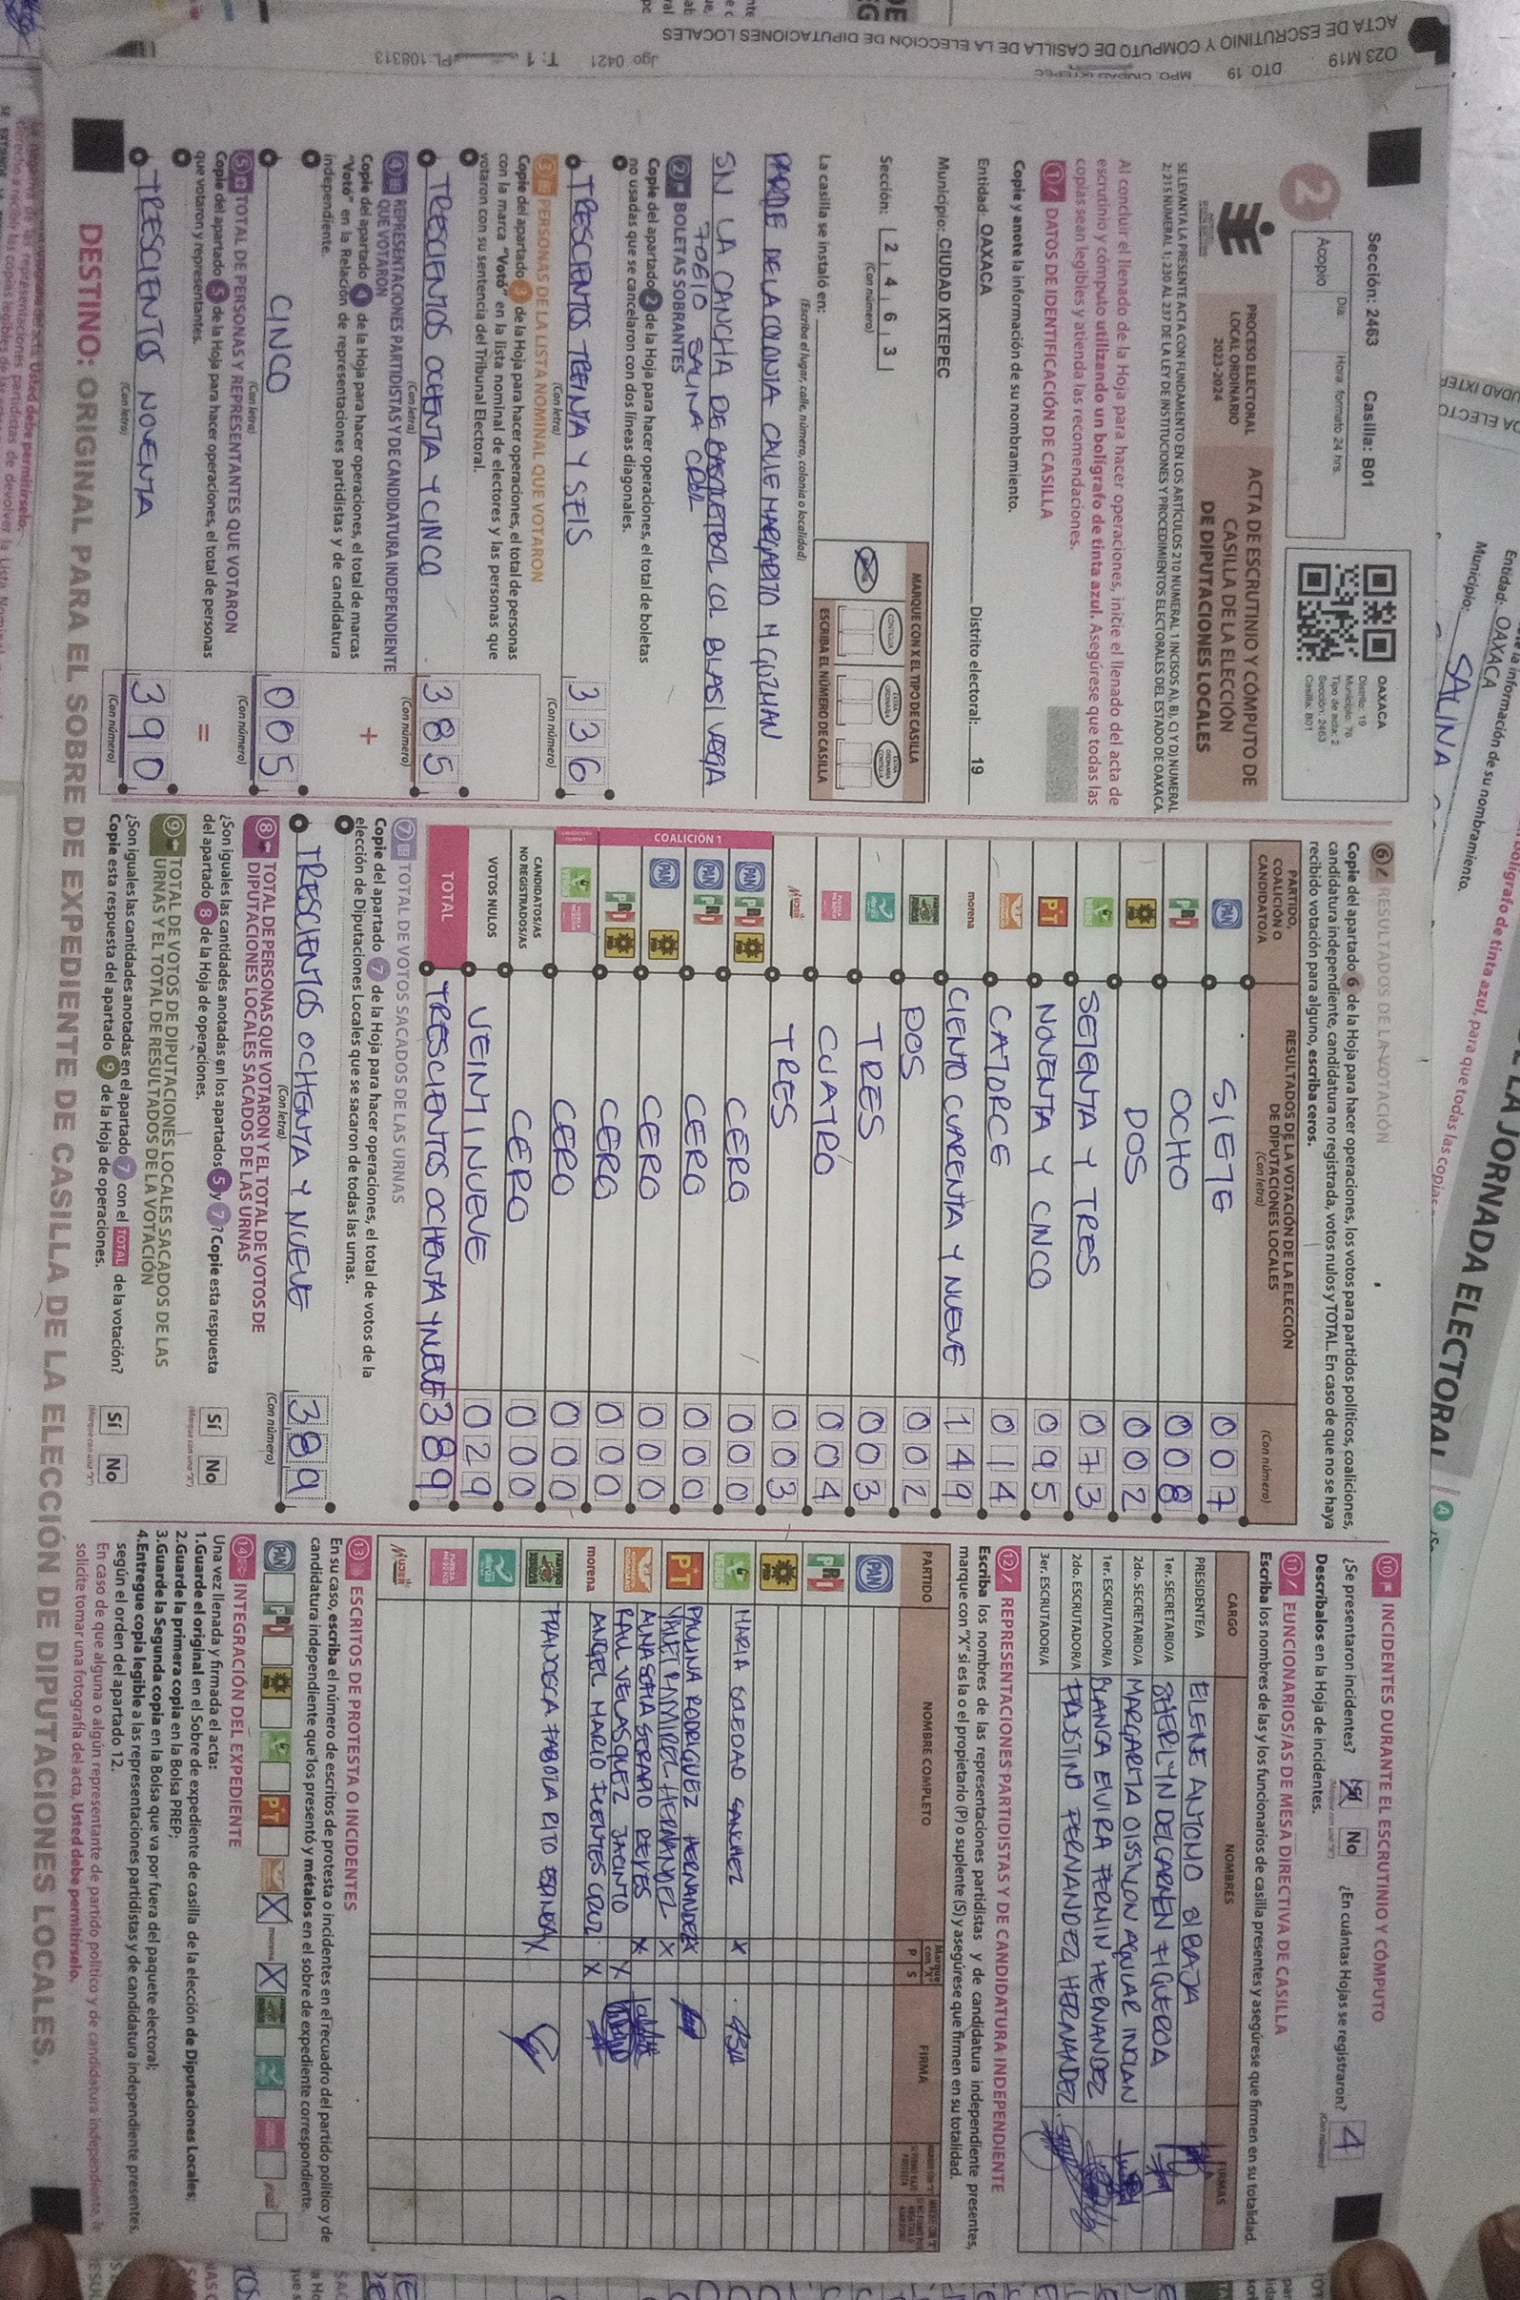 Sección: 2463 Casilla: B01
Día: Hora: formato 24 hrs.
Acopio
2
OAXACA
Distrito: 19
Municipio: 76
Tipo de acta: 2
Sección: 2463
Casilla: B01
PROCESO ELECTORAL
LOCAL ORDINARIO
2023-2024
ACTA DE ESCRUTINIO Y CÓMPUTO DE
CASILLA DE LA ELECCIÓN
DE DIPUTACIONES LOCALES
SE LEVANTA LA PRESENTE ACTA CON FUNDAMENTO EN LOS ARTÍCULOS 210 NUMERAL 1 INCISOS A), B), C) Y D) NUMERAL
2; 215 NUMERAL 1; 230 AL 237 DE LA LEY DE INSTITUCIONES Y PROCEDIMIENTOS ELECTORALES DEL ESTADO DE OAXACA.
Al concluir el llenado de la Hoja para hacer operaciones, inicie el llenado del acta de
escrutinio y cómputo utilizando un bolígrafo de tinta azul. Asegúrese que todas las
copias sean legibles y atienda las recomendaciones.
1 DATOS DE IDENTIFICACIÓN DE CASILLA
Copie y anote la información de su nombramiento.
Entidad: OAXACA Distrito electoral: 19
Municipio: CIUDAD IXTEPEC
Sección: 2 4 6 3
(Con número)
MARQUE CON X EL TIPO DE CASILLA
ESCRIBA EL NÚMERO DE CASILLA
La casilla se instaló en:
(Escriba el lugar, calle, número, colonia o localidad)
PARQUE DE LA COLONIA CALLE MARGARITO M GUZMAN
SN LA CANCHA DE BASQUETBOL COL BLASI VEGA
70610 SALINA CRUZ
2 BOLETAS SOBRANTES
Copie del apartado 2 de la Hoja para hacer operaciones, el total de boletas
no usadas que se cancelaron con dos líneas diagonales.
TRESCIENTOS TREINTA Y SEIS 336
(Con letra) (Con número)
3 PERSONAS DE LA LISTA NOMINAL QUE VOTARON
Copie del apartado 3 de la Hoja para hacer operaciones, el total de personas
con la marca "Votó" en la lista nominal de electores y las personas que
votaron con su sentencia del Tribunal Electoral.
TRESCIENTOS OCHENTA Y CINCO 385
(Con letra) (Con número)
4 REPRESENTACIONES PARTIDISTAS Y DE CANDIDATURA INDEPENDIENTE
QUE VOTARON
Copie del apartado 4 de la Hoja para hacer operaciones, el total de marcas
"Votó" en la Relación de representaciones partidistas y de candidatura
independiente.
+
CINCO 005
(Con letra) (Con número)
5 TOTAL DE PERSONAS Y REPRESENTANTES QUE VOTARON
Copie del apartado 5 de la Hoja para hacer operaciones, el total de personas
que votaron y representantes.
=
TRESCIENTOS NOVENTA 390
(Con letra) (Con número)
6 RESULTADOS DE LA VOTACIÓN
Copie del apartado 6 de la Hoja para hacer operaciones, los votos para partidos políticos, coaliciones,
candidatura independiente, candidatura no registrada, votos nulos y TOTAL. En caso de que no se haya
recibido votación para alguno, escriba ceros.
PARTIDO, COALICIÓN O CANDIDATO/A
RESULTADOS DE LA VOTACIÓN DE LA ELECCIÓN DE DIPUTACIONES LOCALES
(Con letra) (Con número)
PAN SIETE 007
PRI OCHO 008
PRD DOS 002
VERDE SETENTA Y TRES 073
PT NOVENTA Y CINCO 095
CATORCE 014
morena CIENTO CUARENTA Y NUEVE 149
DOS 002
TRES 003
CUATRO 004
MUJER TRES 003
COALICIÓN 1
PAN PRI PRD CERO 000
PAN PRI CERO 000
PAN PRD CERO 000
PRI PRD CERO 000
VERDE CERO 000
CANDIDATOS/AS
NO REGISTRADOS/AS CERO 000
VOTOS NULOS VEINTINUEVE 029
TOTAL TRESCIENTOS OCHENTA Y NUEVE 389
7 TOTAL DE VOTOS SACADOS DE LAS URNAS
Copie del apartado 7 de la Hoja para hacer operaciones, el total de votos de la
elección de Diputaciones Locales que se sacaron de todas las urnas.
TRESCIENTOS OCHENTA Y NUEVE 389
(Con letra) (Con número)
8 TOTAL DE PERSONAS QUE VOTARON Y EL TOTAL DE VOTOS DE
DIPUTACIONES LOCALES SACADOS DE LAS URNAS
¿Son iguales las cantidades anotadas en los apartados 5 y 7? Copie esta respuesta
del apartado 8 de la Hoja de operaciones. Sí No
9 TOTAL DE VOTOS DE DIPUTACIONES LOCALES SACADOS DE LAS
URNAS Y EL TOTAL DE RESULTADOS DE LA VOTACIÓN
¿Son iguales las cantidades anotadas en el apartado 7 con el TOTAL de la votación?
Copie esta respuesta del apartado 9 de la Hoja de operaciones. Sí No
10 INCIDENTES DURANTE EL ESCRUTINIO Y CÓMPUTO
¿Se presentaron incidentes? Sí No ¿En cuántas Hojas se registraron? 4
Descríbalos en la Hoja de incidentes.
11 FUNCIONARIOS/AS DE MESA DIRECTIVA DE CASILLA
Escriba los nombres de las y los funcionarios de casilla presentes y asegúrese que firmen en su totalidad.
CARGO NOMBRES FIRMAS
PRESIDENTE/A ELENE ANTONO BIBAJA
1er. SECRETARIO/A SHERLYN DEL CARMEN FIGUEROA
2do. SECRETARIO/A MARGARITA OISSINON AGUILAR INCLAN
1er. ESCRUTADOR/A BLANCA ELVIRA FERMIN HERNANDEZ
2do. ESCRUTADOR/A FAUSTINO FERNANDEZ HERNANDEZ
3er. ESCRUTADOR/A
12 REPRESENTACIONES PARTIDISTAS Y DE CANDIDATURA INDEPENDIENTE
Escriba los nombres de las representaciones partidistas y de candidatura independiente presentes,
marque con "X" si es la o el propietario (P) o suplente (S) y asegúrese que firmen en su totalidad.
PARTIDO NOMBRE COMPLETO Marque con "X" P S FIRMA
PAN
PRI
PRD
VERDE MARIA SOLEDAD SANCHEZ X
PAULINA RODRIGUEZ HERNANDEZ X
PT YALET RAMIREZ HERNANDEZ X
ALNA SOFIA SERAPIO REYES X
RAUL VELASQUEZ JACINTO X
morena ANGEL MARIO FUENTES CRUZ X
FRANCISCA FABIOLA RITO ESPINOZA X
MUJER
13 ESCRITOS DE PROTESTA O INCIDENTES
En su caso, escriba el número de escritos de protesta o incidentes en el recuadro del partido político y de
candidatura independiente que los presentó y métalos en el sobre de expediente correspondiente.
PAN PRI PRD PT X morena X
14 INTEGRACIÓN DEL EXPEDIENTE
Una vez llenada y firmada el acta:
1.Guarde el original en el Sobre de expediente de casilla de la elección de Diputaciones Locales;
2.Guarde la primera copia en la Bolsa PREP;
3.Guarde la Segunda copia en la Bolsa que va por fuera del paquete electoral;
4.Entregue copia legible a las representaciones partidistas y de candidatura independiente presentes,
según el orden del apartado 12.
En caso de que alguna o algún representante de partido político y de candidatura independiente, le
solicite tomar una fotografía del acta, Usted debe permitírselo.
DESTINO: ORIGINAL PARA EL SOBRE DE EXPEDIENTE DE CASILLA DE LA ELECCIÓN DE DIPUTACIONES LOCALES.
O23 M19 DTO. 19 MPO. CIUDAD IXTEPEC Jgo. 0421 T: 1 PL: 108313
ACTA DE ESCRUTINIO Y CÓMPUTO DE CASILLA DE LA ELECCIÓN DE DIPUTACIONES LOCALES
LA JORNADA ELECTORAL
bolígrafo de tinta azul, para que todas las copias
la información de su nombramiento.
Entidad: OAXACA
Municipio: SALINA